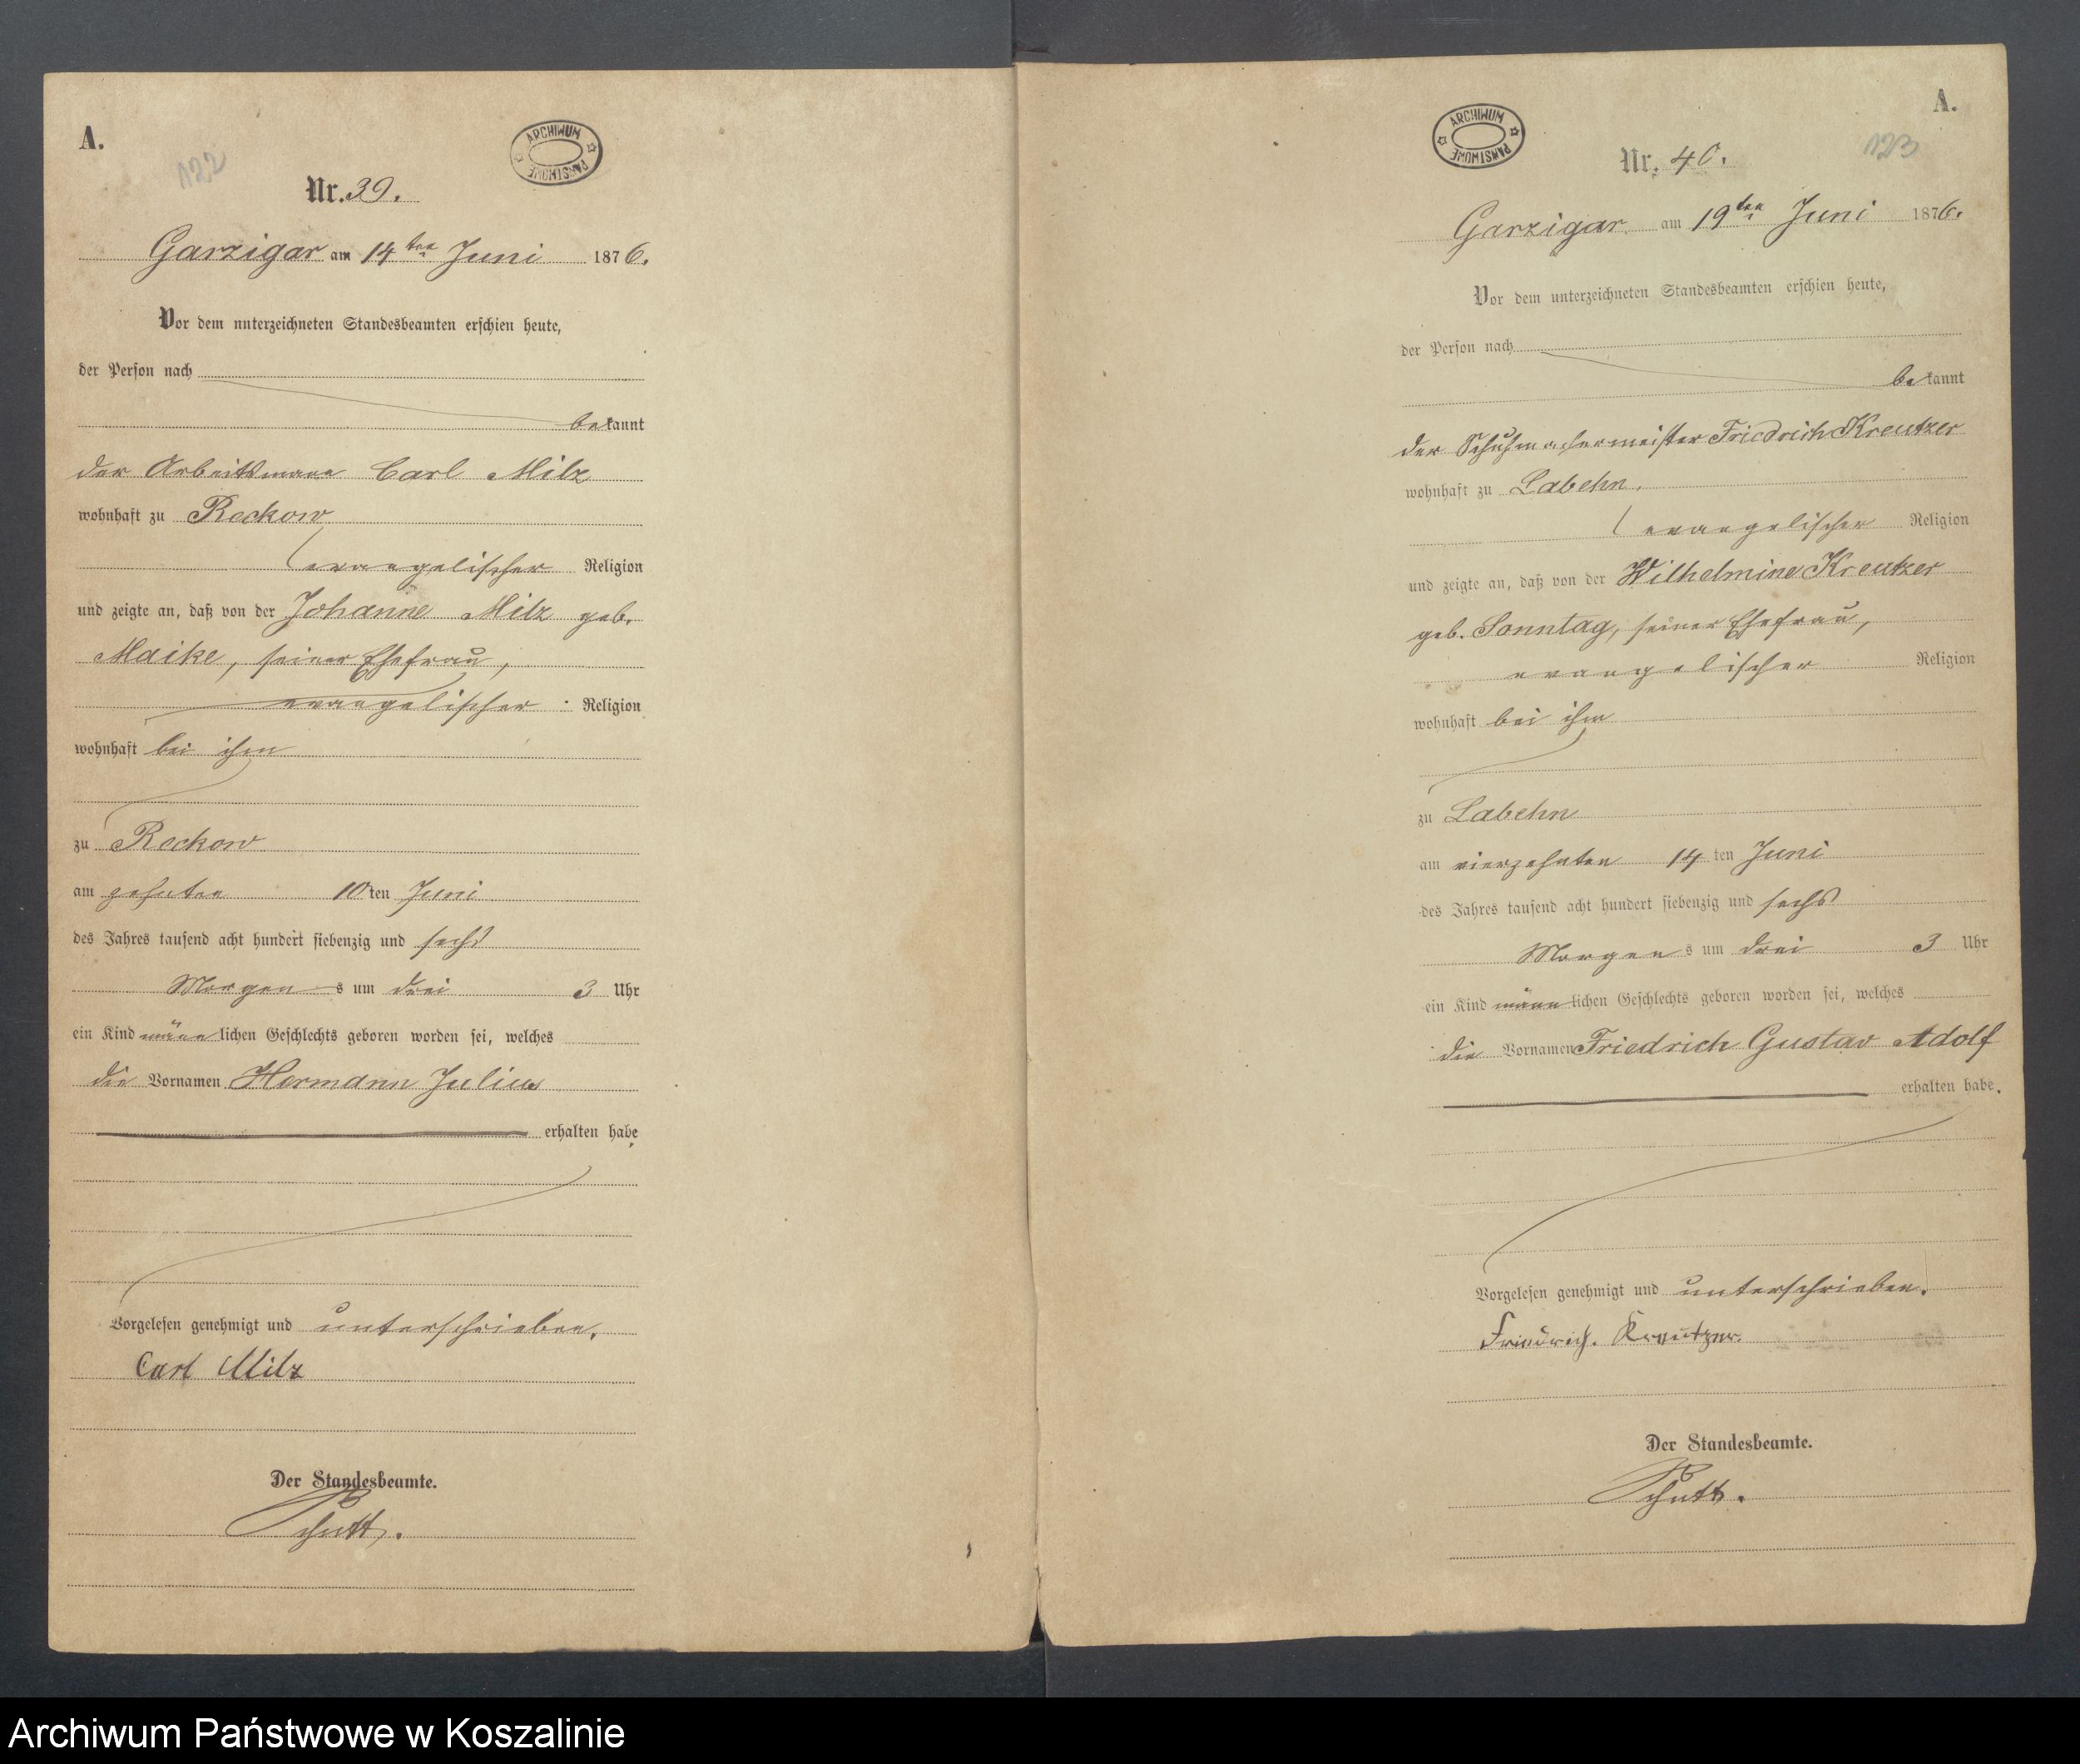 A.
122
ARCHIWUM PAŃSTWOWE
Nr. 39.
Garzigar am 14ten Juni 1876.
Vor dem unterzeichneten Standesbeamten erschien heute,
der Person nach
bekannt
der Arbeitsmann Carl Milz
wohnhaft zu Reckow
evangelischer Religion
und zeigte an, daß von der Johanne Milz geb.
Maike, seiner Ehefrau,
evangelischer Religion
wohnhaft bei ihm
zu Reckow
am zehnten 10 ten Juni
des Jahres tausend acht hundert siebenzig und sechs
Morgens um drei 3 Uhr
ein Kind männlichen Geschlechts geboren worden sei, welches
die Vornamen Hermann Julius
erhalten habe.
Vorgelesen genehmigt und unterschrieben.
Carl Milz
Der Standesbeamte.
Schutt.
A.
123
ARCHIWUM PAŃSTWOWE
Nr. 40.
Garzigar am 19ten Juni 1876.
Vor dem unterzeichneten Standesbeamten erschien heute,
der Person nach
bekannt
der Schuhmachermeister Friedrich Kreutzer
wohnhaft zu Labehn.
evangelischer Religion
und zeigte an, daß von der Wilhelmine Kreutzer
geb. Sonntag, seiner Ehefrau,
evangelischer Religion
wohnhaft bei ihm
zu Labehn
am vierzehnten 14 ten Juni
des Jahres tausend acht hundert siebenzig und sechs
Morgens um drei 3 Uhr
ein Kind männlichen Geschlechts geboren worden sei, welches
die Vornamen Friedrich Gustav Adolf
erhalten habe.
Vorgelesen genehmigt und unterschrieben.
Friedrich. Kreutzer.
Der Standesbeamte.
Schutt.
Archiwum Państwowe w Koszalinie